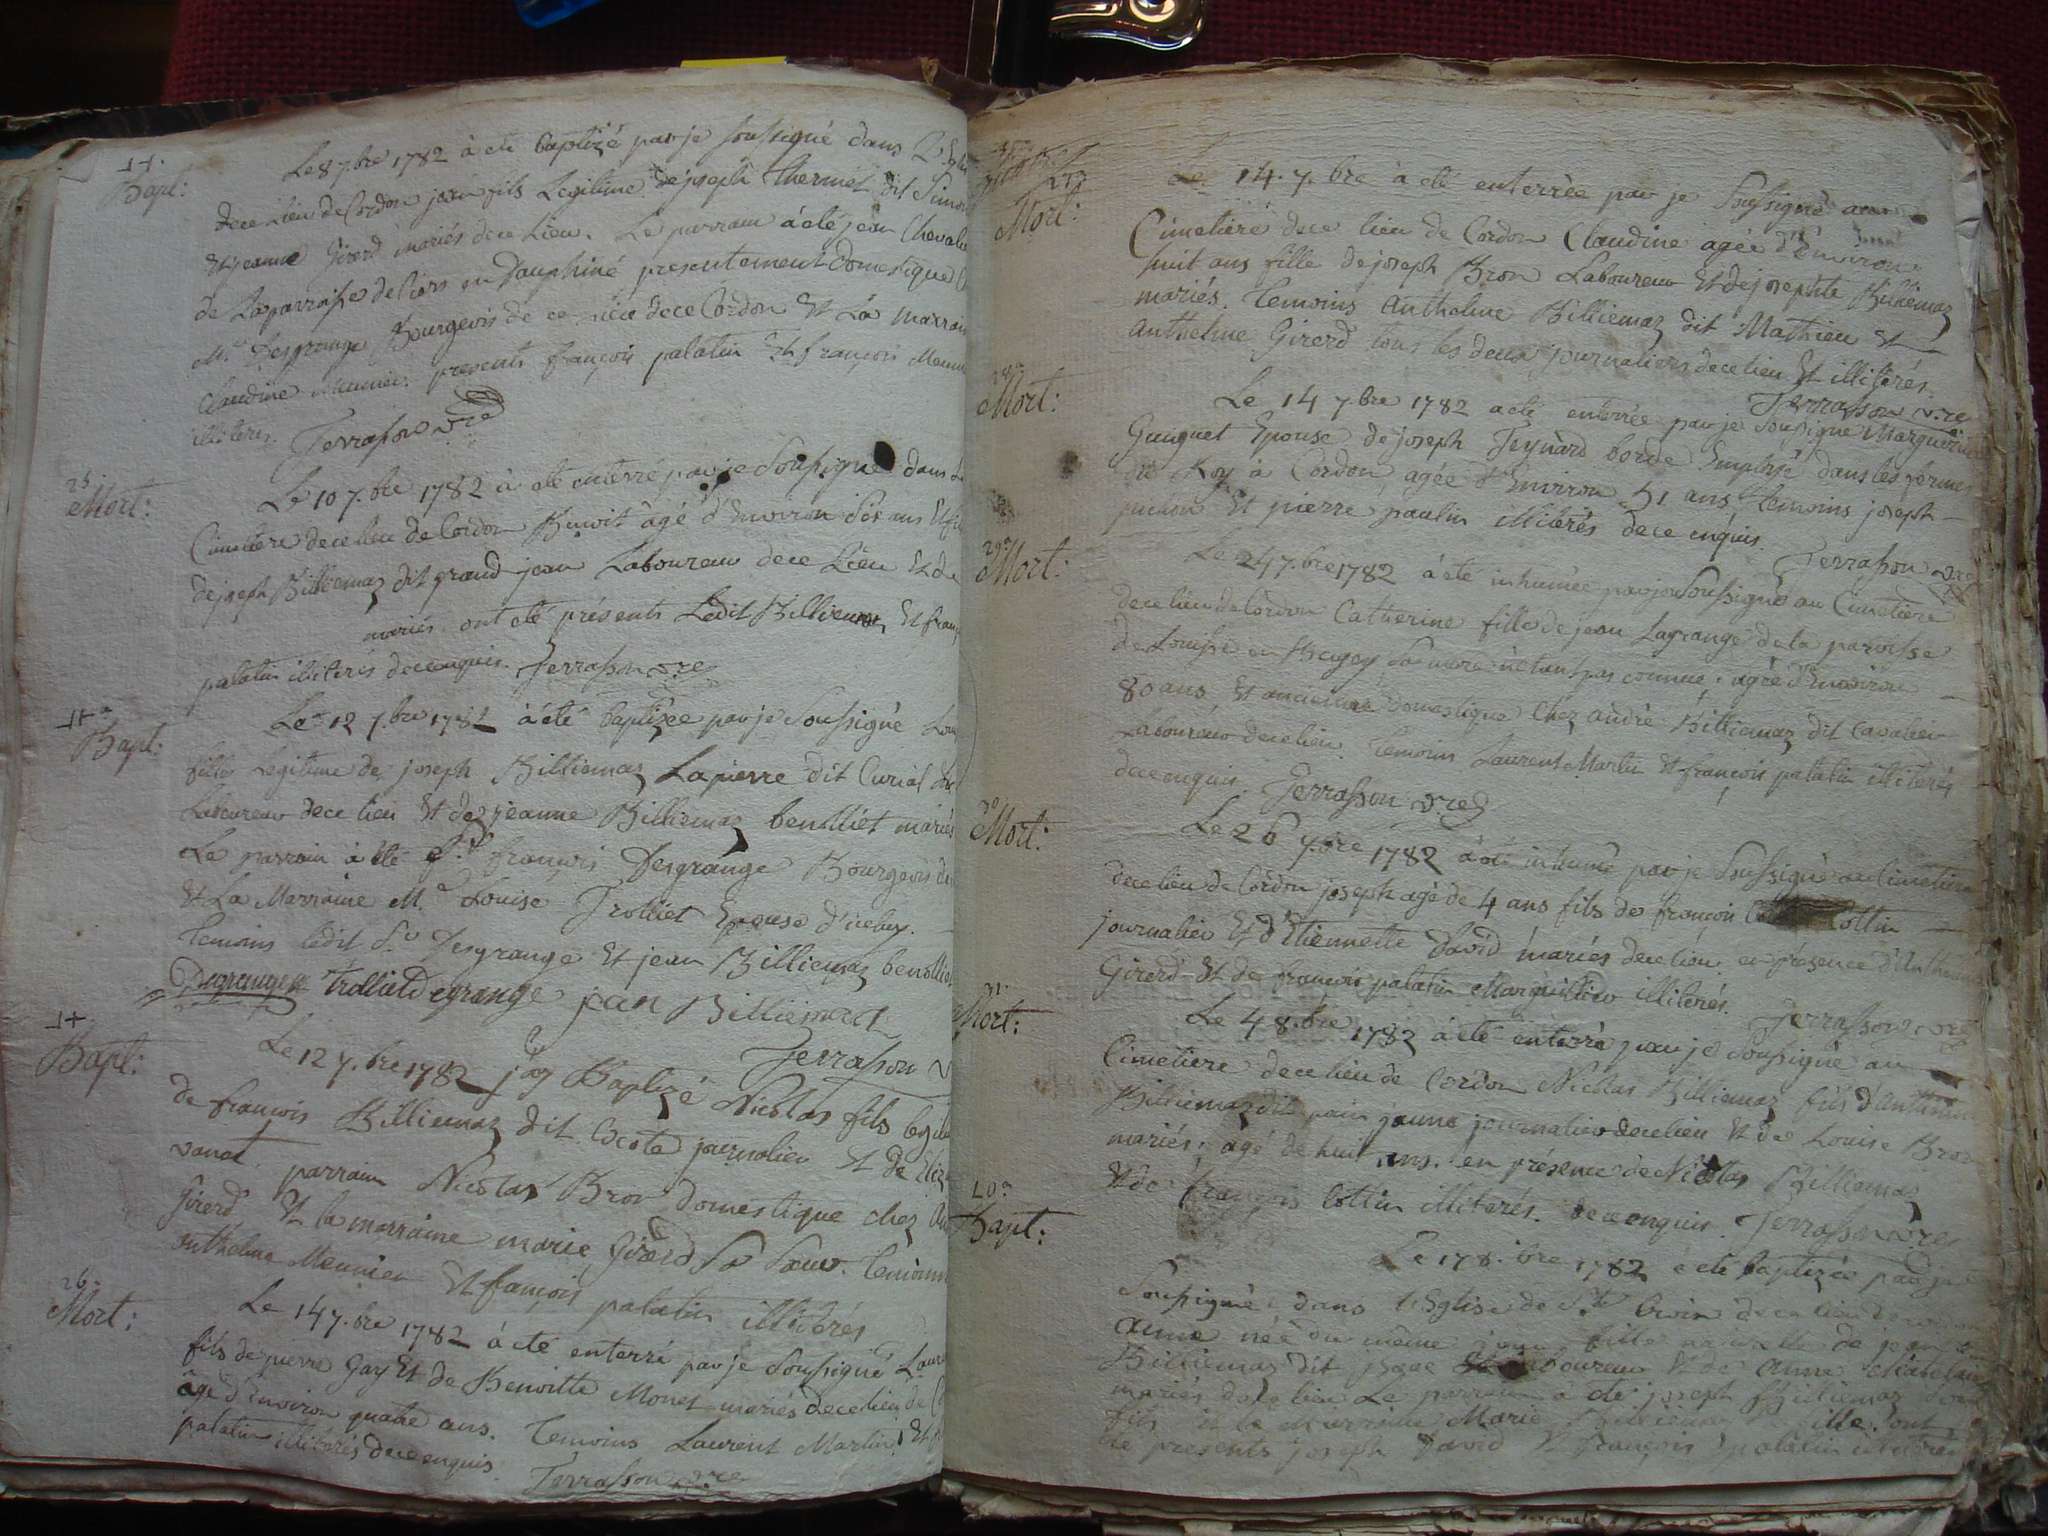 Bapt:
Le 8 7bre 1782 à eté baptizé par je soussigné dans L'Egli
dece Lieu de Cordon jean fils Legitime de joseph thermet dit Simon
Et jeanne Girerd mariés dece Lieu. Le parrain à eté jean Chevalie
de Laparroisse de en Dauphiné presentement domestique
Mr Desgrange Bourgeois de ce lieu dece Cordon Et La marrain
Claudine presents françois palatin Et françois Meunie
illiterés. Terrasson vre
Mort:
Le 10 7.bre 1782 à eté enterré par je Soussigné dans Le
Cimetiere dece lieu de Cordon Benoit âgé d'Environ dix ans Et fils
de joseph Billiemaz dit grand jean Laboureur dece Lieu Et de
mariés ont eté présents Ledit Billiemaz Et franç
palatin illiterés decee enquis. Terrasson vre
Bapt:
Le 12 7.bre 1782 à été baptizée par je Soussigné Lou
fille Legitime de joseph Billiemaz Lapierre dit Curial
Laboureur dece lieu Et de jeanne Billiemaz benolliet mariés
Le parrain à eté Sr françois Desgrange Bourgeois de
Et La Marraine Me Louise Trolliet Epouse d'icelui.
Temoins ledit Sr Desgrange Et jean Billiemaz benollie
Degrange trolliet Degrange jean Billiemaz
Terrasson v
Bapt:
Le 12 7.bre 1782 j'ay Baptizé Nicolas fils legiti
de françois Billiemaz dit Cocota journalier Et de Eliz
vanet parrain Nicolas Bron domestique chez
Girerd Et la marraine marie Girerd Sa Sœur. Temoins
anthelme Meunier Et françois palatin illiterés
26
Mort:
Le 14 7.bre 1782 à eté enterré par je Soussigné Laure
fils de pierre Gay Et de Benoitte Monet mariés dece lieu de C
âgé d'Environ quatre ans. Temoins Laurent Martin Et f
palatin illiterés decee enquis. Terrasson vre
27
Mort:
Le 14.7.bre à eté enterrée par je Soussigné au
Cimetiere dece lieu de Cordon Claudine agée d'Environ
huit ans fille de joseph Bron Laboureur Et de josephte Billiemaz
mariés. Temoins anthelme Billiemaz dit Mathieu Et
anthelme Girerd tous les deux journaliers dece lieu Et illiterés.
Terrasson vre
28
Mort:
Le 14 7bre 1782 a eté enterrée par je Soussigné Marguerite
Guiguet Epouse de joseph Teynard borde Employé dans les fermes
du Roy à Cordon, agée d'Environ 51 ans. Temoins joseph
pichon Et pierre paulin illiterés decee enquis.
Terrasson vre
29
Mort:
Le 24 7.bre 1782 à été inhumée par je Soussigné au Cimetiere
dece lieu de Cordon Catherine fille de jean Lagrange de la paroisse
de en Bugey Sa mere n'etant pas connue; agée d'Environ
80 ans Et ancienne domestique chez andré Billiemaz dit Cavalier
Laboureur dece lieu. Temoins Laurent Martin Et françois palatin illiterés
decee enquis. Terrasson vre
30
Mort:
Le 26 7.bre 1782 à été inhumé par je Soussigné au Cimetiere
dece lieu de Cordon joseph agé de 4 ans fils de françois Cottin
journalier Et d'Etiennette David mariés dece lieu. en présence d'Anthelme
Girerd Et de françois palatin Marguillier illiterés.
Terrasson vre
31
Mort:
Le 4 8.bre 1782 à eté enterré par je Soussigné au
Cimetiere dece lieu de Cordon Nicolas Billiemaz fils d'Anthelme
Billiemaz dit journalier dece lieu Et de Louise Bron
mariés; agé de huit ans. en présence de Nicolas Billiemaz
Et de françois Cottin illiterés. decee enquis. Terrasson vre
Bapt:
Le 17 8.bre 1782 à eté baptizée par je
Soussigné dans l'Eglise de dece lieu de Cordon
anne née du même jour fille de jean
Billiemaz dit Laboureur Et de anne
mariés dece lieu. Le parrain a eté joseph Billiemaz
fils Et la marraine Marie Billiemaz fille. ont
eté presents joseph David Et françois palatin illiterés